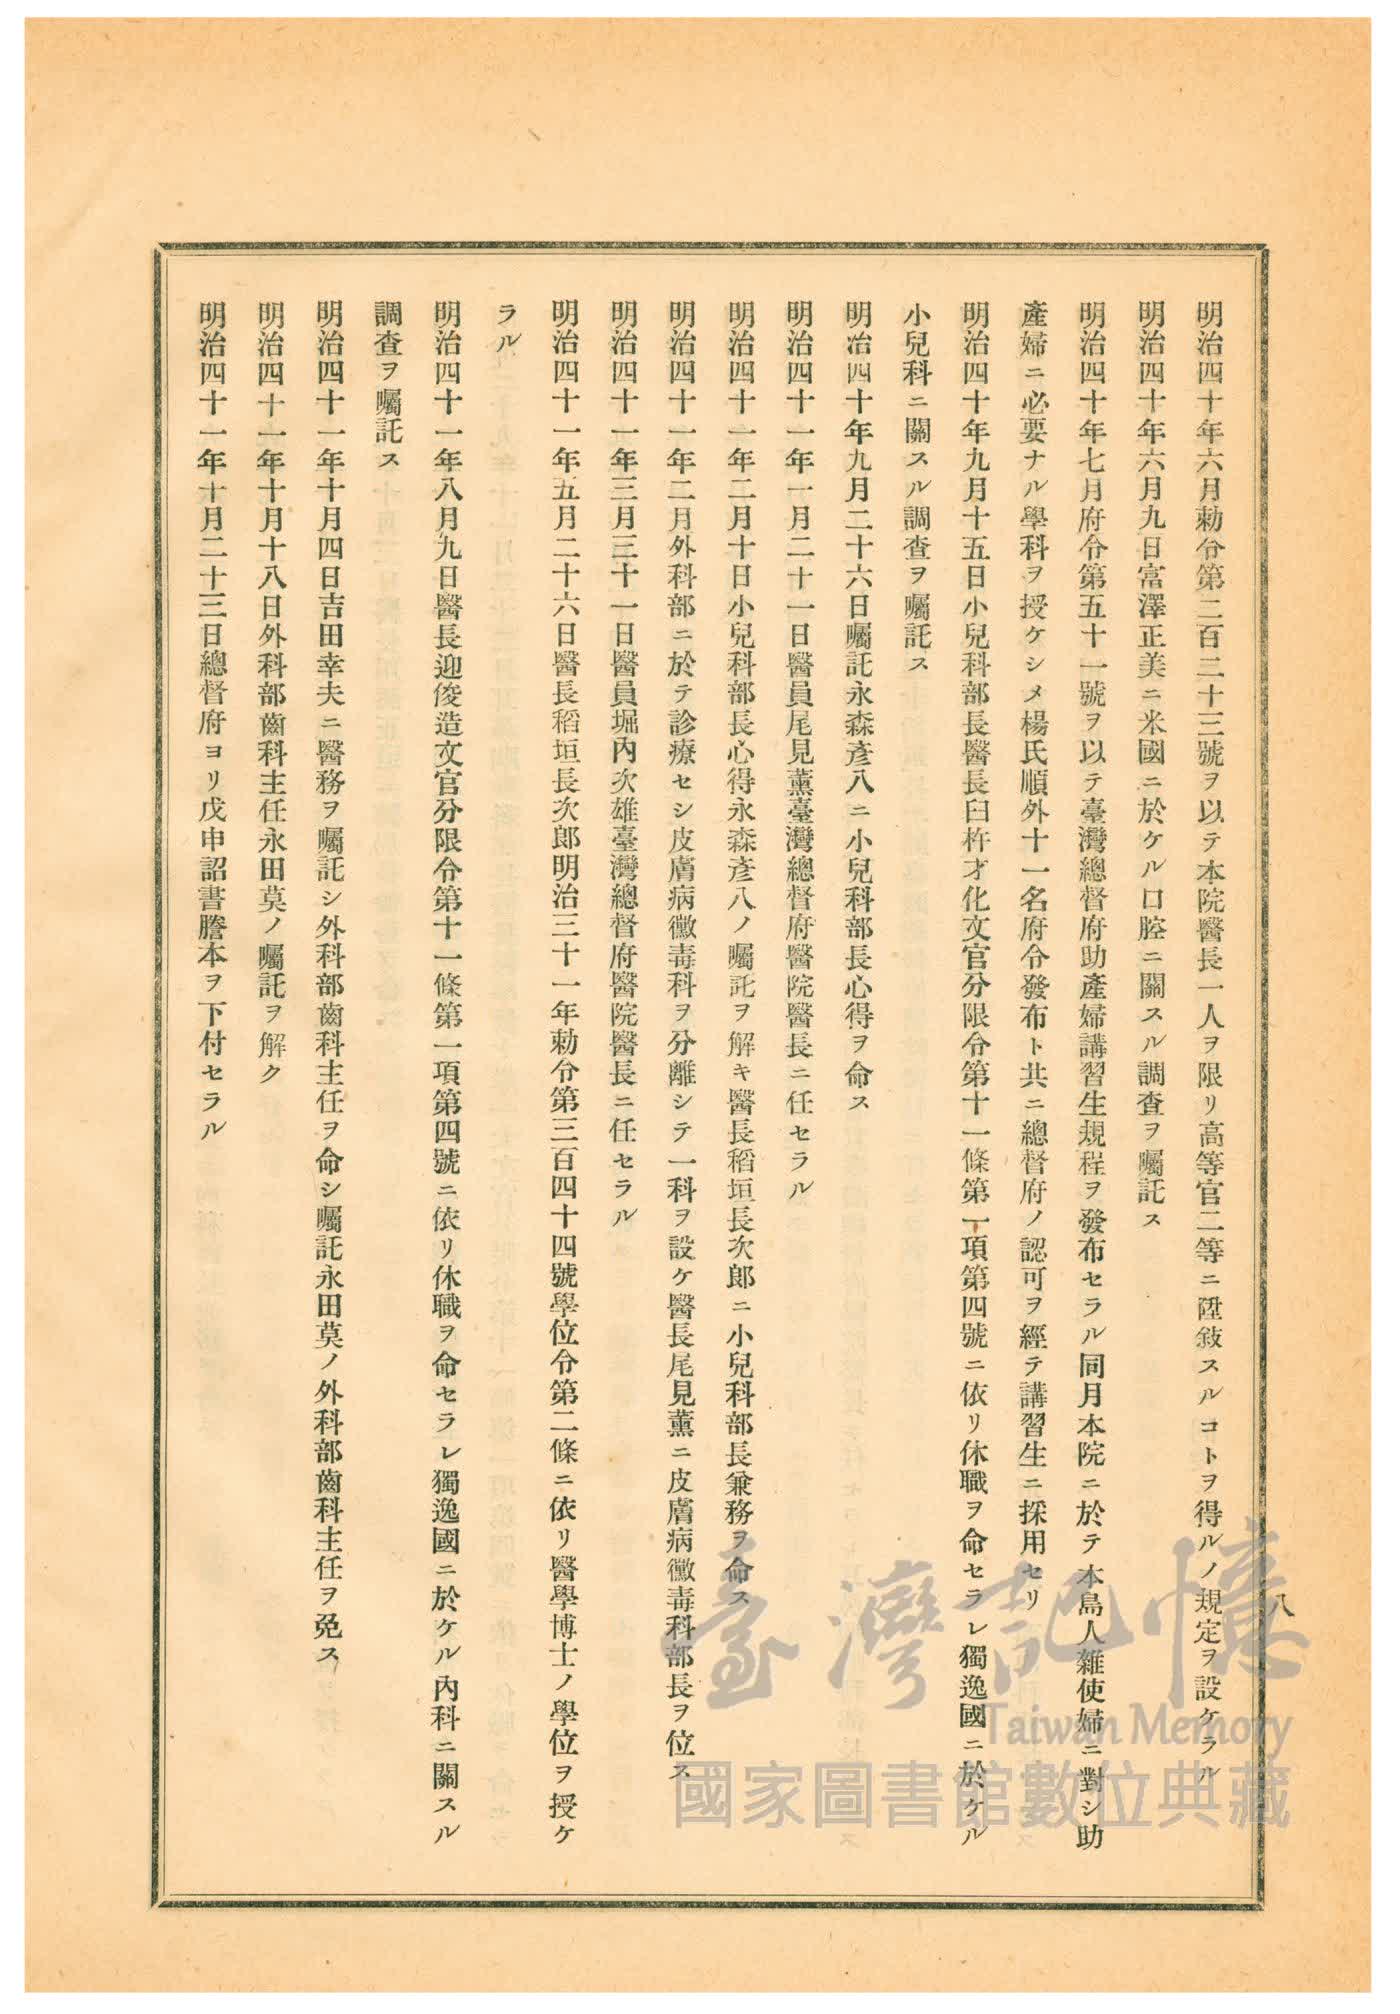 明治四十年六月勅令第二百二十三號ヲ以テ本院醫長一人ヲ限リ高等官二等ニ陞敍スルコトヲ得ルノ規定ヲ設ケラル
明治四十年六月九日富澤正美ニ米國ニ於ケル口腔ニ關スル調査ヲ囑託ス
明治四十年七月府令第五十一號ヲ以テ臺灣總督府助產婦講習生規程ヲ發布セラル同月本院ニ於テ本島人雜使婦ニ對シ助
產婦ニ必要ナル學科ヲ授ケシメ楊氏順外十一名府令發布ト共ニ總督府ノ認可ヲ經テ講習生ニ採用セリ
明治四十年九月十五日小兒科部長醫長臼杵才化文官分限令第十一條第一項第四號ニ依リ休職ヲ命セラレ獨逸國ニ於ケル
小兒科ニ關スル調査ヲ囑託ス
明治四十年九月二十六日囑託永森彥八ニ小兒科部長心得ヲ命ス
明治四十一年一月二十一日醫員尾見薰臺灣總督府醫院醫長ニ任セラル
明治四十一年二月十日小兒科部長心得永森彥八ノ囑託ヲ解キ醫長稻垣長次郎ニ小兒科部長兼務ヲ命ス
明治四十一年二月外科部ニ於テ診療セシ皮膚病黴毒科ヲ分離シテ一科ヲ設ケ醫長尾見薰ニ皮膚病黴毒科部長ヲ位ス
明治四十一年三月三十一日醫員堀內次雄臺灣總督府醫院醫長ニ任セラル
明治四十一年五月二十六日醫長稻垣長次郎明治三十一年勅令第三百四十四號學位令第二條ニ依リ醫學博士ノ學位ヲ授ケ
ラル
明治四十一年八月九日醫長迎俊造文官分限令第十一條第一項第四號ニ依リ休職ヲ命セラレ獨逸國ニ於ケル內科ニ關スル
調査ヲ囑託ス
明治四十一年十月四日吉田幸夫ニ醫務ヲ囑託シ外科部齒科主任ヲ命シ囑託永田莫ノ外科部齒科主任ヲ免ス
明治四十一年十月十八日外科部齒科主任永田莫ノ囑託ヲ解ク
明治四十一年十月二十三日總督府ヨリ戊申詔書謄本ヲ下付セラル
八
臺灣記憶
Taiwan Memory
國家圖書館數位典藏